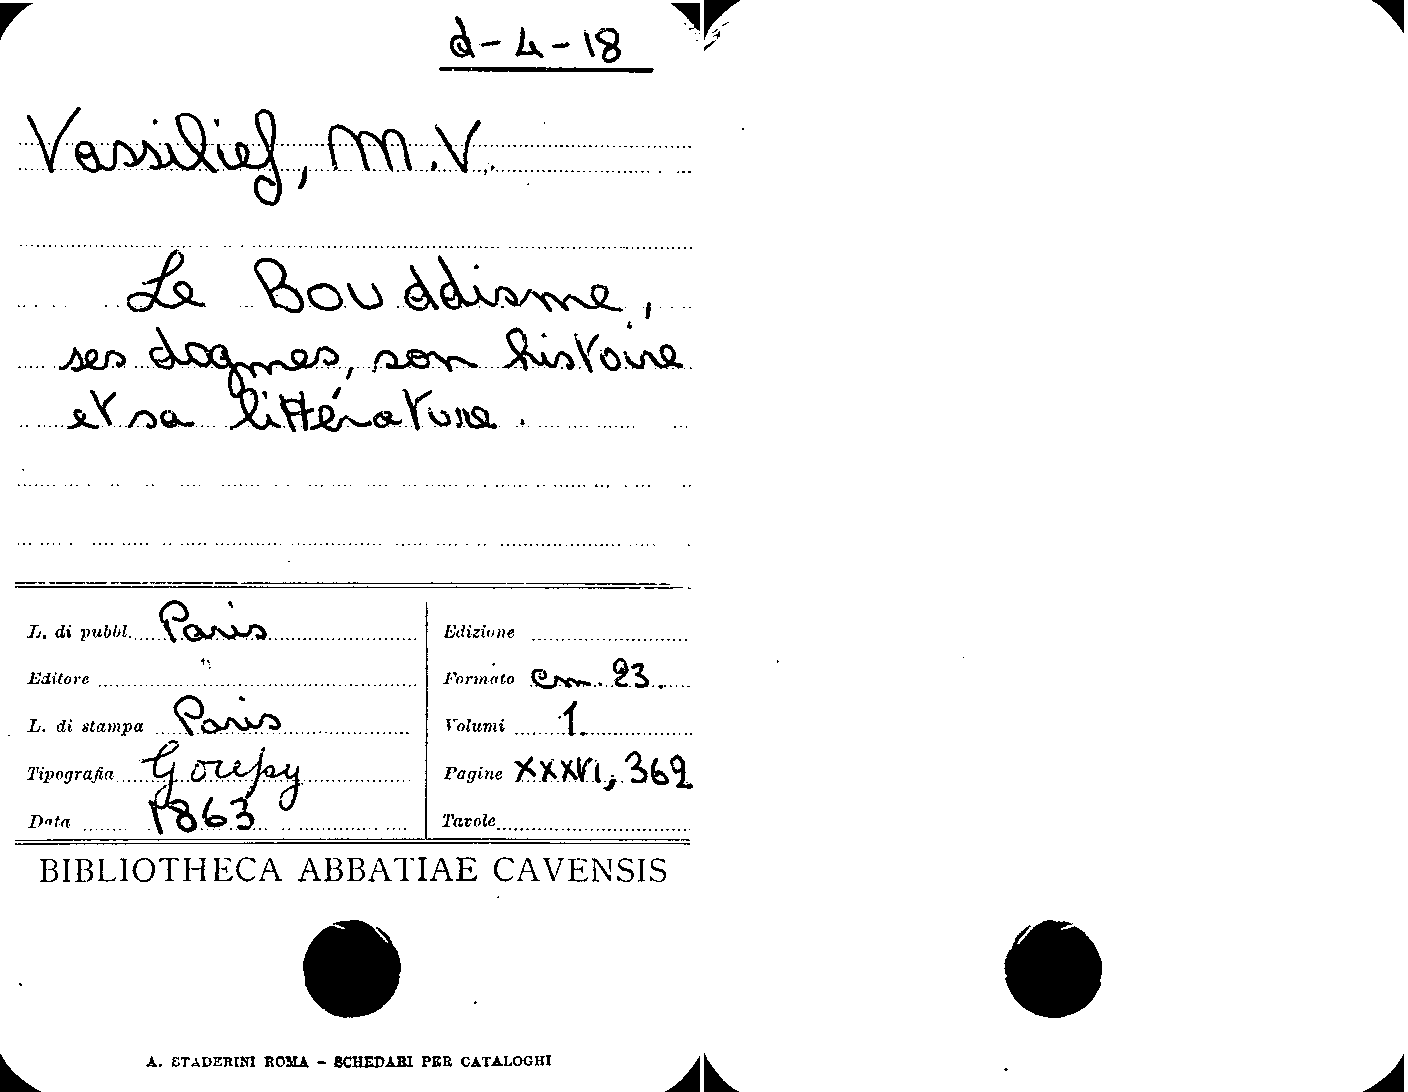 d-4-18
Vassilief, M.V.
Le Bouddisme,
ses dogmes, son histoire
et sa littérature.
L. di pubbl. Paris
Editore
L. di stampa Paris
Tipografia Goupy
Data 1863
Edizione
Formato cm. 23.
Volumi 1.
Pagine XXXVI, 362
Tavole
BIBLIOTHECA ABBATIAE CAVENSIS
A. STADERINI ROMA - SCHEDARI PER CATALOGHI